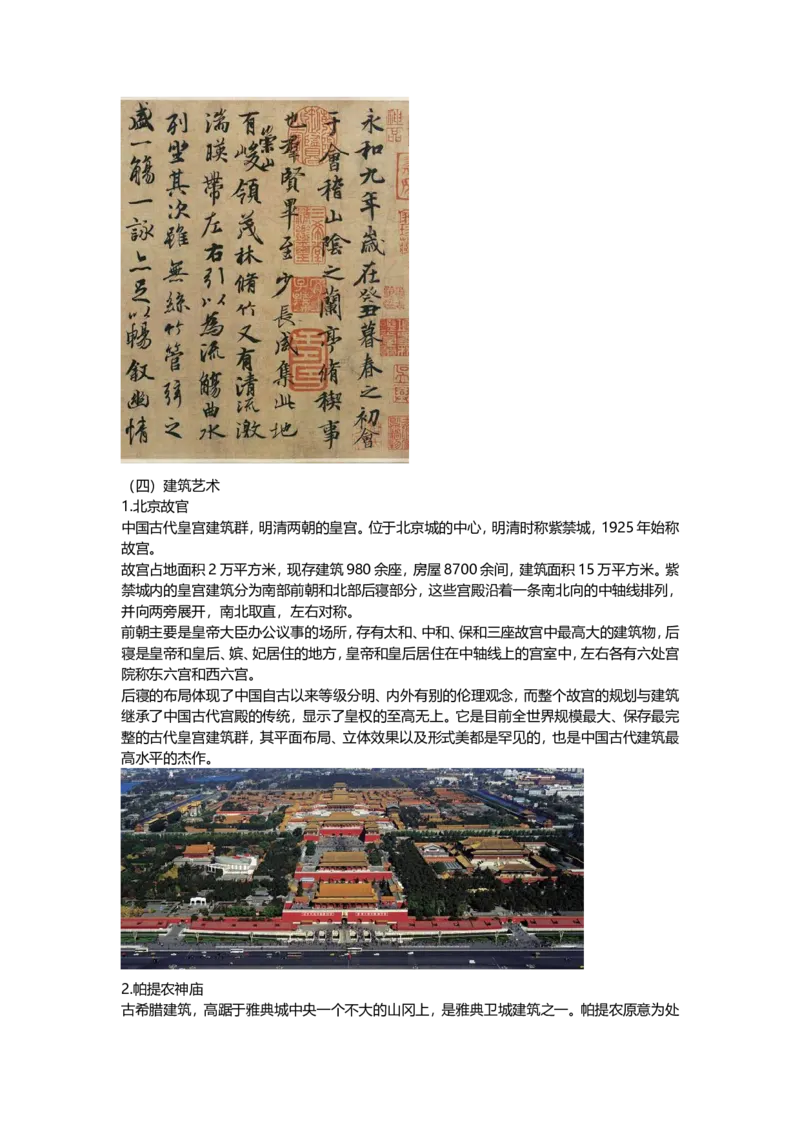 永和九年歲在癸丑暮春之初會
于會稽山陰之蘭亭脩稧事
也羣賢畢至少長咸集此地
有崇山峻領茂林脩竹又有清流激
湍暎帶左右引以為流觴曲水
列坐其次雖無絲竹管弦之
盛一觴一詠亦足以暢叙幽情
（四）建筑艺术
1.北京故官
中国古代皇宫建筑群，明清两朝的皇宫。位于北京城的中心，明清时称紫禁城，1925年始称
故宫。
故宫占地面积2万平方米，现存建筑980余座，房屋8700余间，建筑面积15万平方米。紫
禁城内的皇宫建筑分为南部前朝和北部后寝部分，这些宫殿沿着一条南北向的中轴线排列，
并向两旁展开，南北取直，左右对称。
前朝主要是皇帝大臣办公议事的场所，存有太和、中和、保和三座故宫中最高大的建筑物，后
寝是皇帝和皇后、嫔、妃居住的地方，皇帝和皇后居住在中轴线上的宫室中，左右各有六处宫
院称东六宫和西六宫。
后寝的布局体现了中国自古以来等级分明、内外有别的伦理观念，而整个故宫的规划与建筑
继承了中国古代宫殿的传统，显示了皇权的至高无上。它是目前全世界规模最大、保存最完
整的古代皇宫建筑群，其平面布局、立体效果以及形式美都是罕见的，也是中国古代建筑最
高水平的杰作。
2.帕提农神庙
古希腊建筑，高踞于雅典城中央一个不大的山冈上，是雅典卫城建筑之一。帕提农原意为处